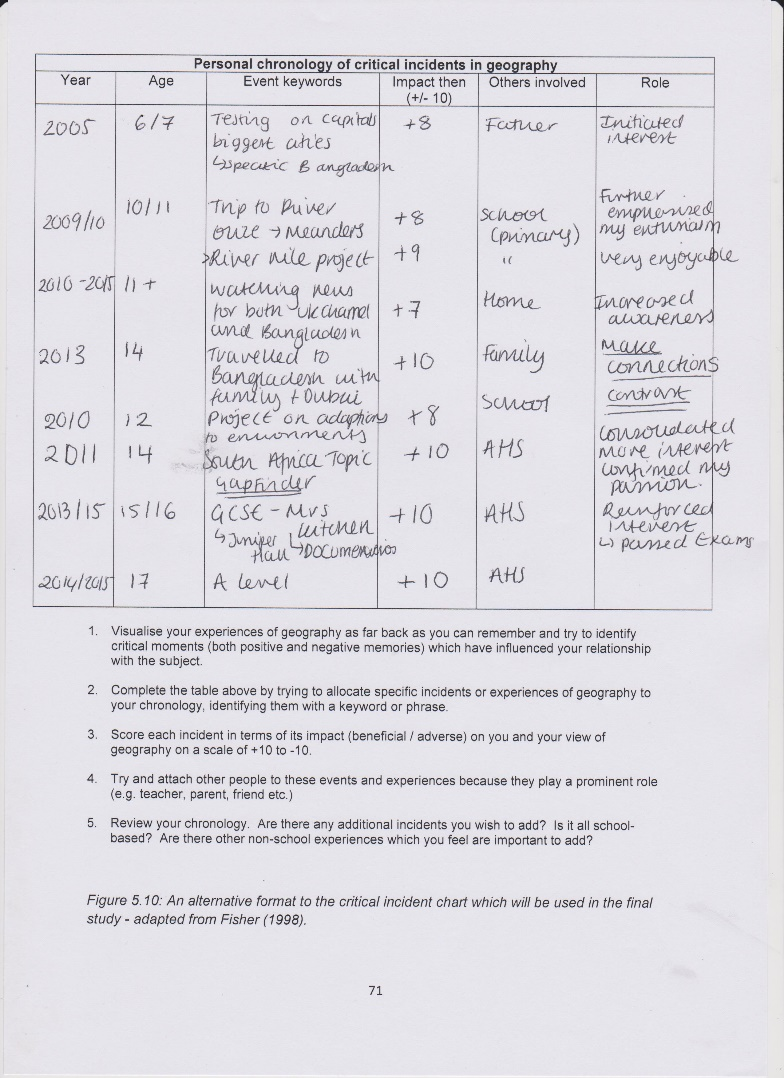 Personal chronology of critical incidents in geography
Year Age Event keywords Impact then Others involved Role
(+/- 10)
2005 6/7 Testing on capitals +8 Father Initiated
biggest cities interest
↳specific Bangladesh
2009/10 10/11 Trip to River +8 School Further emphasized
Ouze → Meanders (primary) my enthusiasm
>River Nile project +9 " very enjoyable
2010-2015 11+ watching news +7 Home Increased
for both UK channel awareness
and Bangladesh
2013 14 Travelled to +10 family Make
Bangladesh with connections
family + Dubai contrast
2010 12 Project on adaptions +8 School
to environments
2011 14 South Africa Topic +10 AHS Consolidated
Gapfinder more interest
confirmed my
passion.
2013/15 15/16 GCSE - Mrs Kitchen +10 AHS Reinforced
↳Juniper Hall ↳Documentaries interest
↳ passed Exams
2014/2015 17 A level +10 AHS
1. Visualise your experiences of geography as far back as you can remember and try to identify
critical moments (both positive and negative memories) which have influenced your relationship
with the subject.
2. Complete the table above by trying to allocate specific incidents or experiences of geography to
your chronology, identifying them with a keyword or phrase.
3. Score each incident in terms of its impact (beneficial / adverse) on you and your view of
geography on a scale of +10 to -10.
4. Try and attach other people to these events and experiences because they play a prominent role
(e.g. teacher, parent, friend etc.)
5. Review your chronology. Are there any additional incidents you wish to add? Is it all school-
based? Are there other non-school experiences which you feel are important to add?
Figure 5.10: An alternative format to the critical incident chart which will be used in the final
study - adapted from Fisher (1998).
71